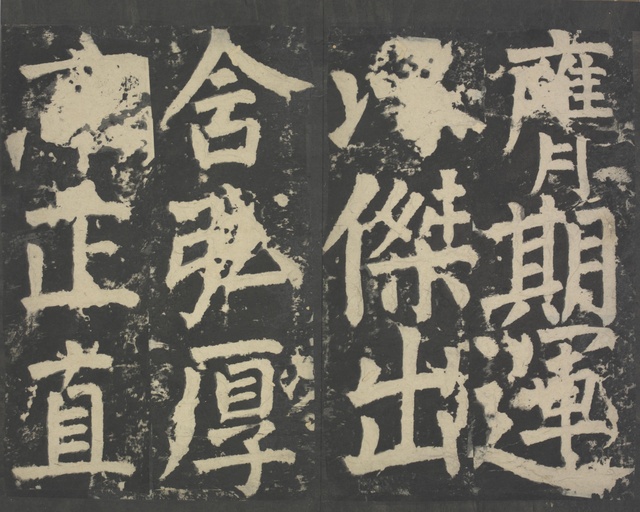 膺期運
傑出
含弘厚
正直